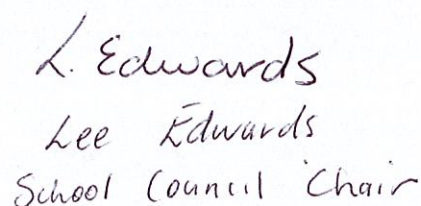 L. Edwards
Lee Edwards
School Council Chair